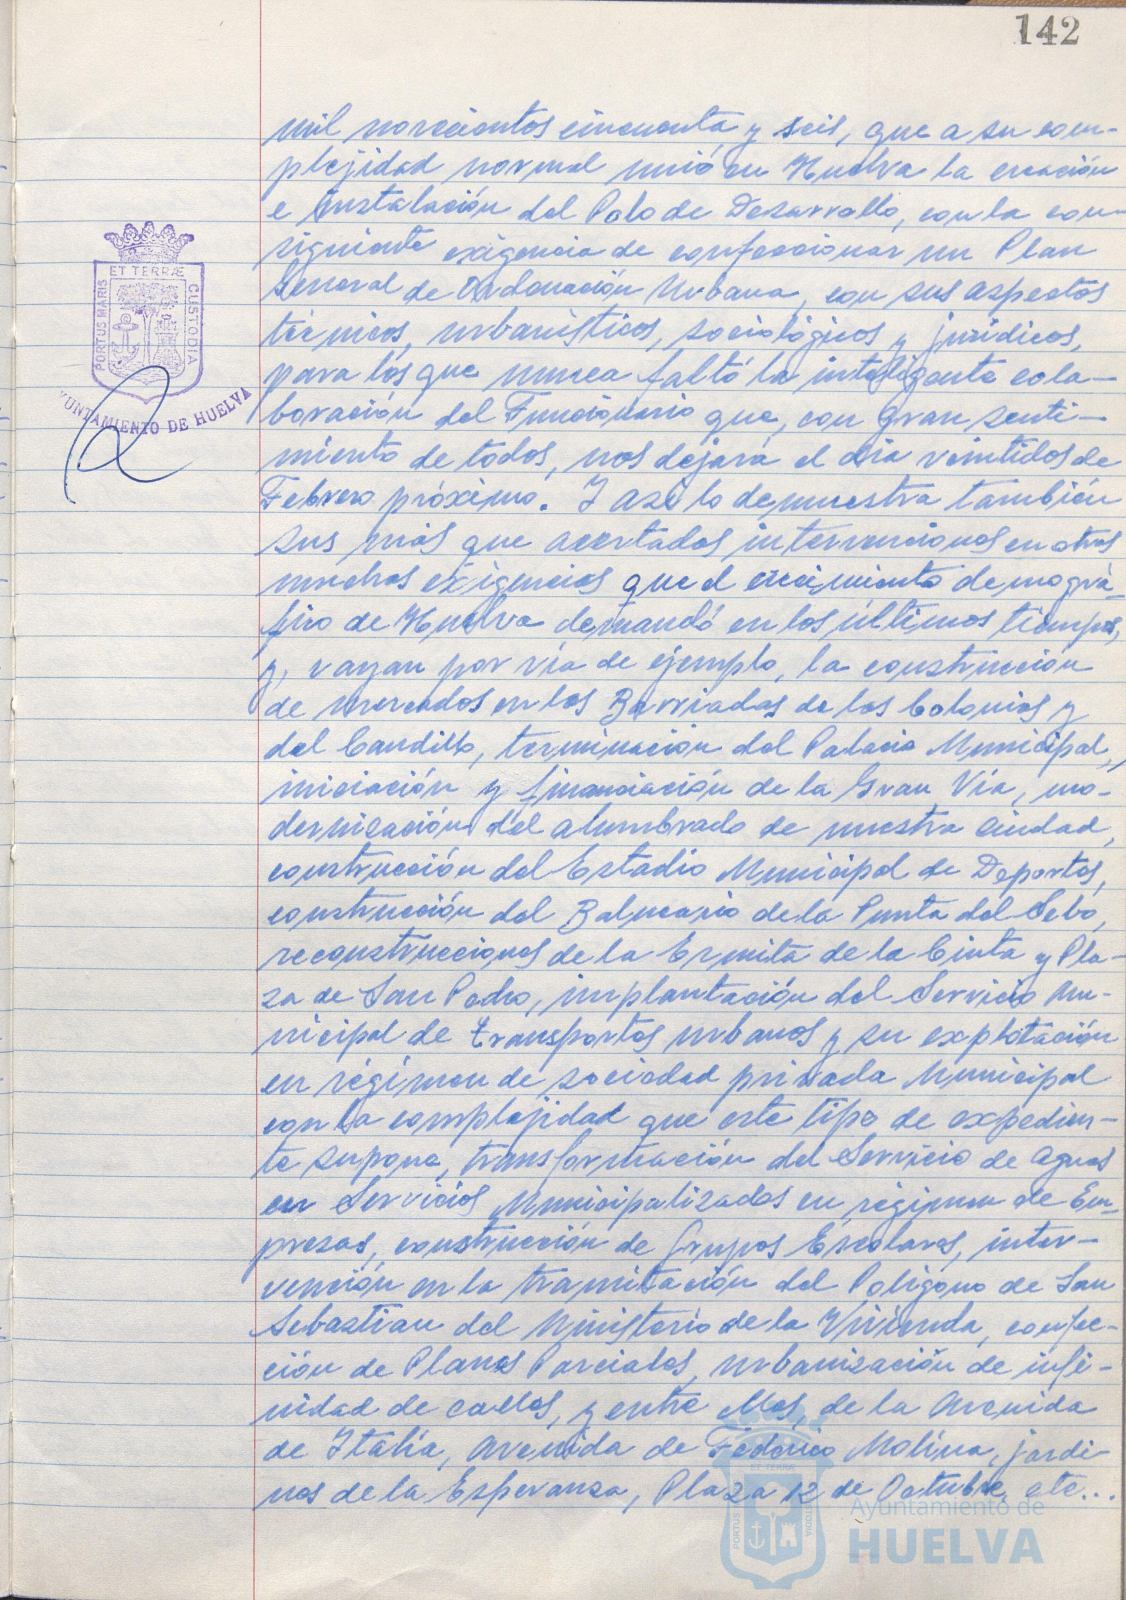 142
mil novecientos cincuenta y seis, que a su com-
plejidad normal unió en Huelva la creación
e instalación del Polo de Desarrollo, con la con-
siguiente exigencia de confeccionar un Plan
General de Ordenación Urbana, con sus aspectos
técnicos, urbanísticos, sociológicos y jurídicos,
para los que nunca faltó la inteligente cola-
boración del Funcionario que, con gran senti-
miento de todos, nos dejará el dia veintidos de
Febrero próximo. Y asi lo demuestra también
sus más que acertadas intervenciones en otras
muchas exigencias que el crecimiento demográ-
fico de Huelva demandó en los últimos tiempos,
y, vayan por via de ejemplo, la construcción
de mercados en las Barriadas de las Colonias y
del Caudillo, terminación del Palacio Municipal,
iniciación y financiación de la Gran Vía, mo-
dernización del alumbrado de nuestra ciudad,
construcción del Estadio Municipal de Deportes,
construcción del Balneario de la Punta del Sebo,
reconstrucciones de la Ermita de la Cinta y Pla-
za de San Pedro, implantación del Servicio Mu-
nicipal de transportes urbanos y su explotación
en régimen de sociedad privada Municipal
con la complejidad que este tipo de expedien-
te supone, transformación del Servicio de aguas
en Servicios Municipalizados en régimen de Em-
presas, construcción de Grupos Escolares, inter-
vención en la tramitación del Poligono de San
Sebastian del Ministerio de la Vivienda, confec-
ción de Planes Parciales, urbanización de infi-
nidad de calles, y entre ellas, de la Avenida
de Italia, Avenida de Federico Molina, jardi-
nes de la Esperanza, Plaza 12 de Octubre, etc...
PORTUS MARIS
ET TERRÆ
CUSTODIA
AYUNTAMIENTO DE HUELVA
Ayuntamiento de
HUELVA